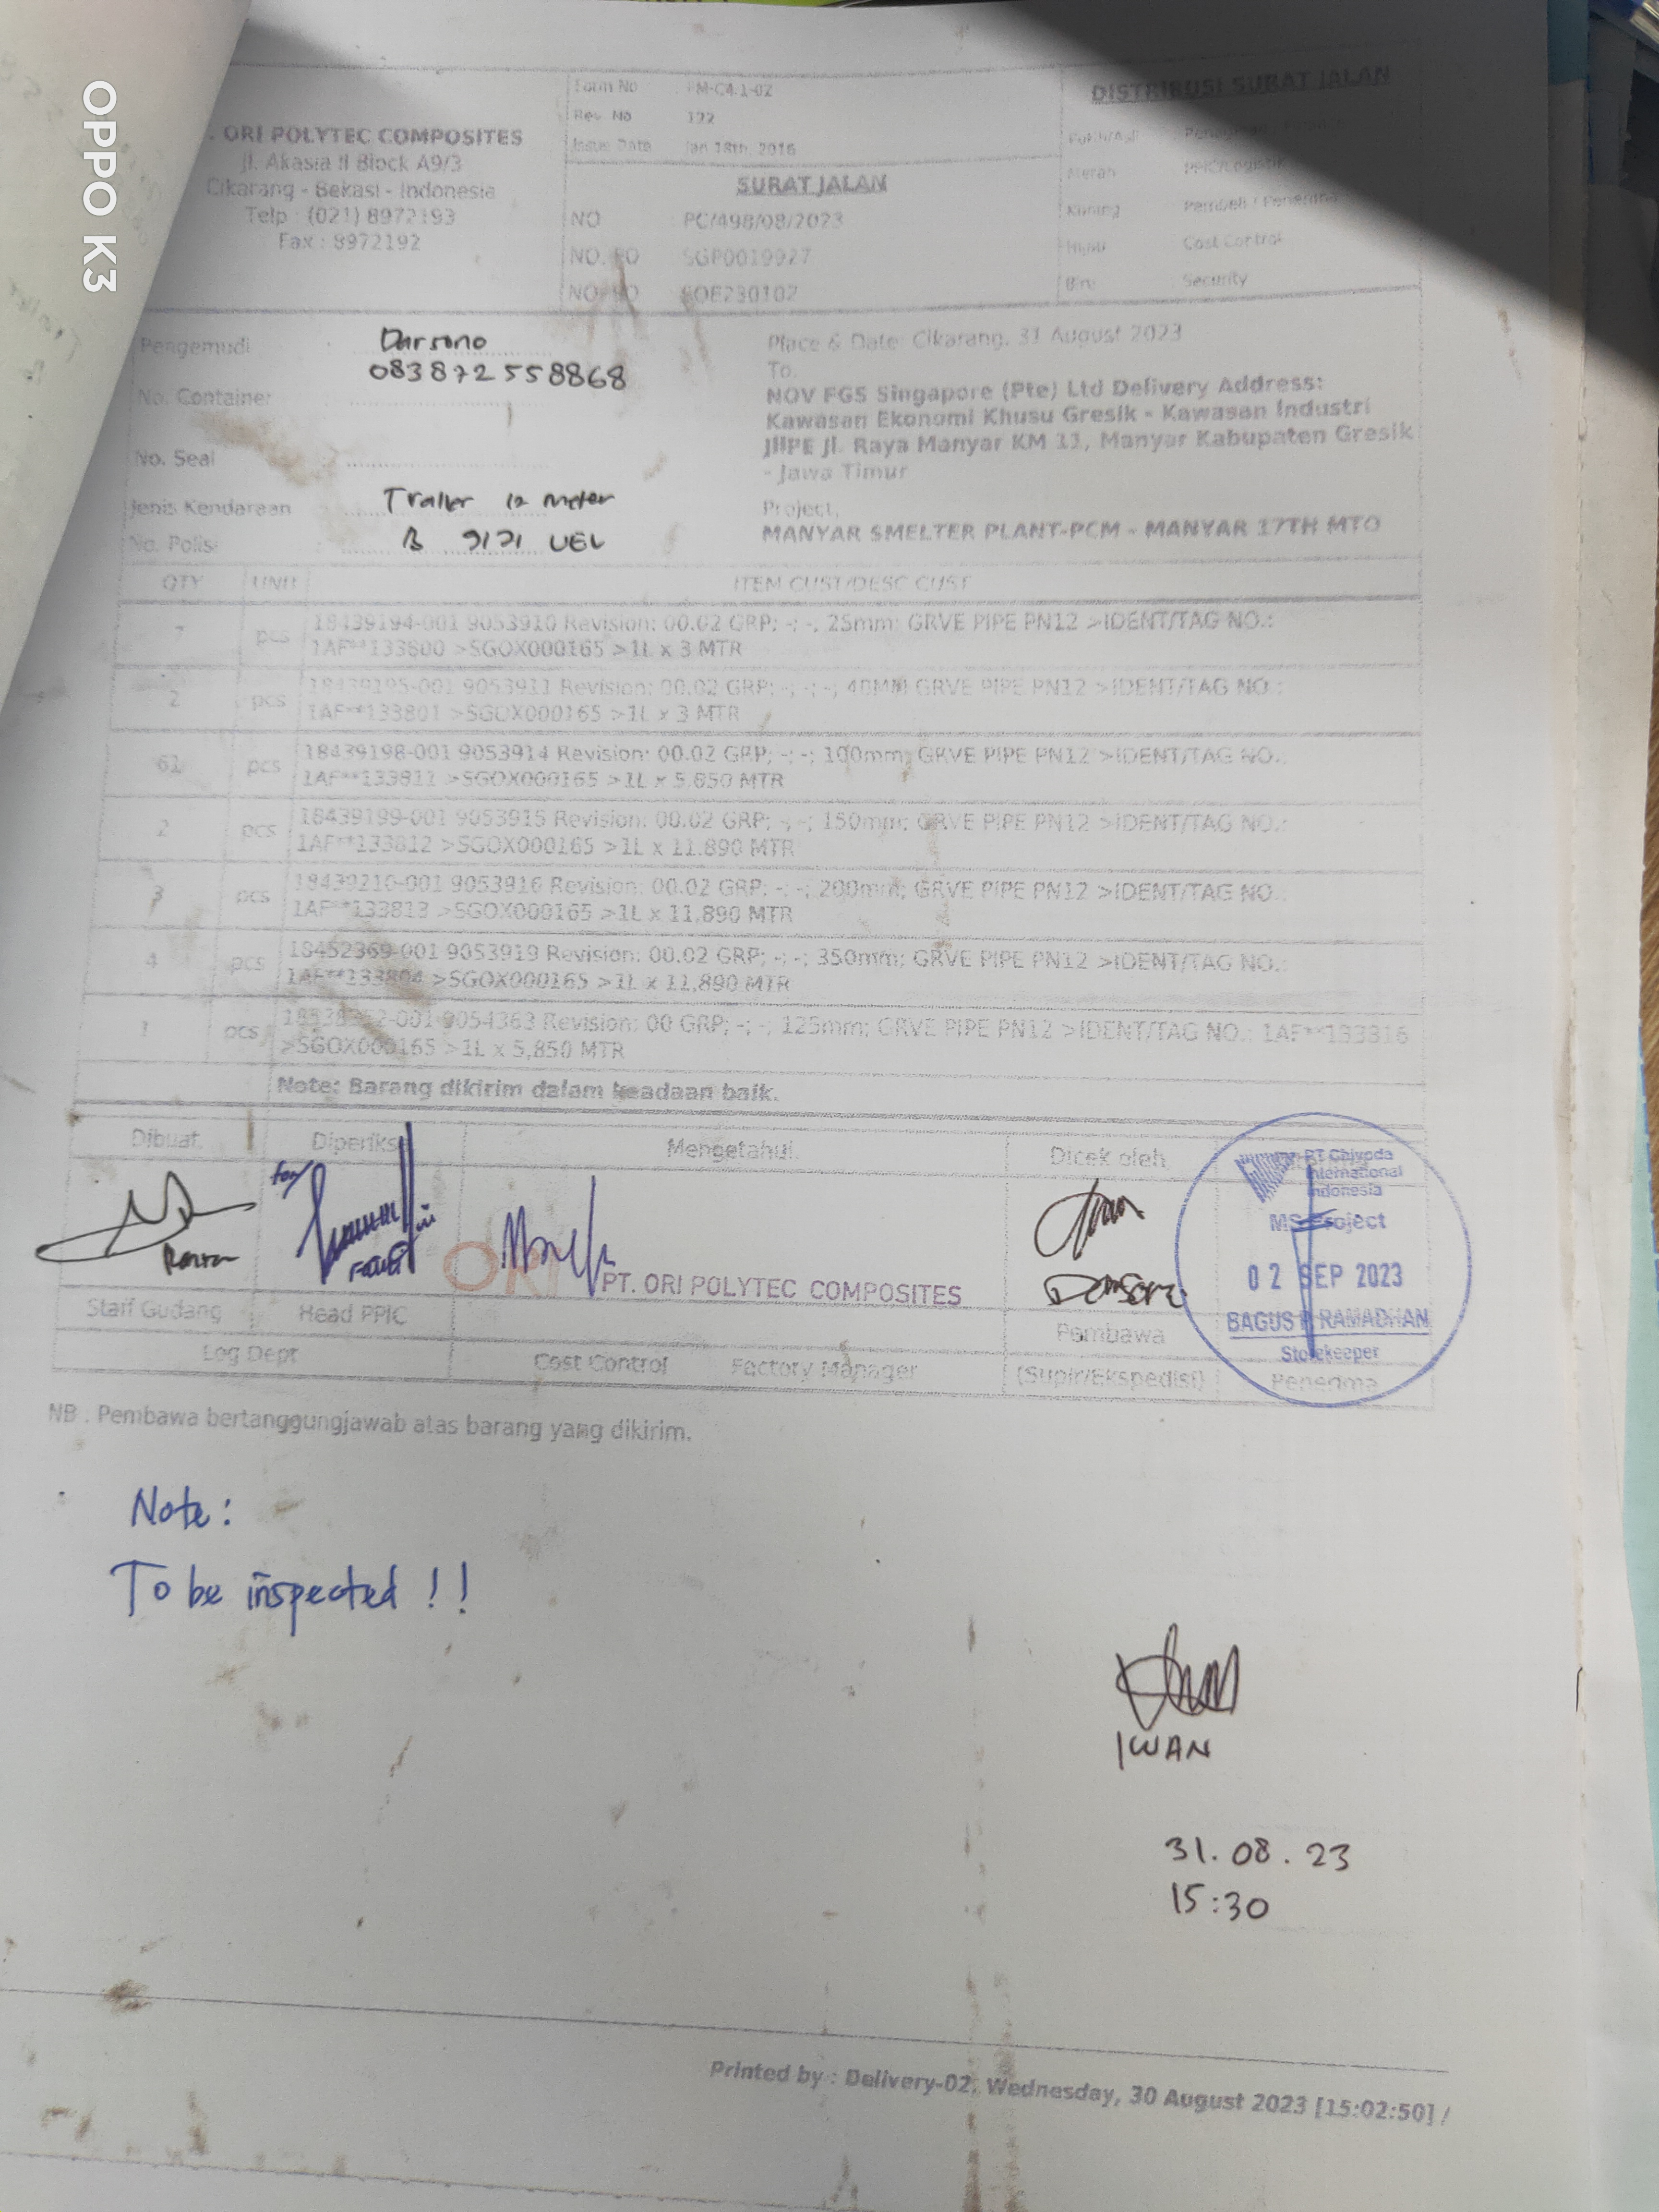 OPPO K3
ORI POLYTEC COMPOSITES
Jl. Akasia II Block A9/3
Cikarang - Bekasi - Indonesia
Telp : (021) 8972193
Fax : 8972192
Form No : FM-C4.1-02
Rev. No : 122
Issue Date : Jan 18th, 2016
SURAT JALAN
NO PC/498/08/2023
NO. PO SGP0019927
NO. SO SOE230102
DISTRIBUSI SURAT JALAN
Putih/Asli
Merah PPIC/Logistik
Kuning Pembeli / Penerima
Hijau Cost Control
Biru Security
Pengemudi Darsono
083872558868
No. Container
No. Seal
Jenis Kendaraan Trailer 12 meter
No. Polisi B 9171 UEL
Place & Date: Cikarang, 31 August 2023
To.
NOV FGS Singapore (Pte) Ltd Delivery Address:
Kawasan Ekonomi Khusu Gresik - Kawasan Industri
JIIPE Jl. Raya Manyar KM 11, Manyar Kabupaten Gresik
- Jawa Timur
Project,
MANYAR SMELTER PLANT-PCM - MANYAR 17TH MTO
QTY UNIT ITEM CUST/DESC CUST
7 pcs 18439194-001 9053910 Revision: 00.02 GRP; -; -; 25mm; GRVE PIPE PN12 >IDENT/TAG NO.:
1AF**133800 >SGOX000165 >1L x 3 MTR
2 pcs 18439195-001 9053911 Revision: 00.02 GRP; -; -; -; 40MM GRVE PIPE PN12 >IDENT/TAG NO.:
1AF**133801 >SGOX000165 >1L x 3 MTR
61 pcs 18439198-001 9053914 Revision: 00.02 GRP; -; -; 100mm; GRVE PIPE PN12 >IDENT/TAG NO.:
1AF**133811 >SGOX000165 >1L x 5,850 MTR
2 pcs 18439199-001 9053915 Revision: 00.02 GRP; -; -; 150mm; GRVE PIPE PN12 >IDENT/TAG NO.:
1AF**133812 >SGOX000165 >1L x 11.890 MTR
3 pcs 18439210-001 9053916 Revision: 00.02 GRP; -; -; 200mm; GRVE PIPE PN12 >IDENT/TAG NO.:
1AF**133813 >SGOX000165 >1L x 11,890 MTR
4 pcs 18452369-001 9053919 Revision: 00.02 GRP; -; -; 350mm; GRVE PIPE PN12 >IDENT/TAG NO.:
1AF**133804 >SGOX000165 >1L x 11,890 MTR
1 pcs 9054363 Revision: 00 GRP; -; -; 125mm; GRVE PIPE PN12 >IDENT/TAG NO.: 1AF**133816
>SGOX000165 >1L x 5,850 MTR
Note: Barang dikirim dalam keadaan baik.
Dibuat, Diperiksa Mengetahui, Dicek oleh,
for
ORI
PT. ORI POLYTEC COMPOSITES
Darsono
PT Chiyoda
International
Indonesia
MS Project
02 SEP 2023
BAGUS P. RAMADHAN
Storekeeper
Staff Gudang Head PPIC Pembawa
Log Dept Cost Control Factory Manager (Supir/Ekspedisi) Penerima
NB : Pembawa bertanggungjawab atas barang yang dikirim.
Note:
To be inspected !!
IWAN
31.08.23
15:30
Printed by : Delivery-02, Wednesday, 30 August 2023 [15:02:50] /